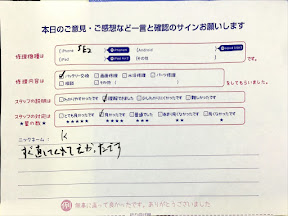 本日のご意見・ご感想など一言と確認のサインお願いします
修理機種は iPhone SE2 Android
iPad その他
修理内容は バッテリー交換 画面修理 水没修理 パーツ修理
をしてもらいました。
スタッフの説明は わかりやすかったです 理解できました 少しわかりにくかったです 難しかったです
スタッフの対応は とても良かったです 良かったです 普通でした
★の数★ ★★★★★ ★★★★ ★★★ ★★ ★
ニックネーム： K
すぐ直してくれてよかったです
修理に来って良かったです。ありがとうございました。